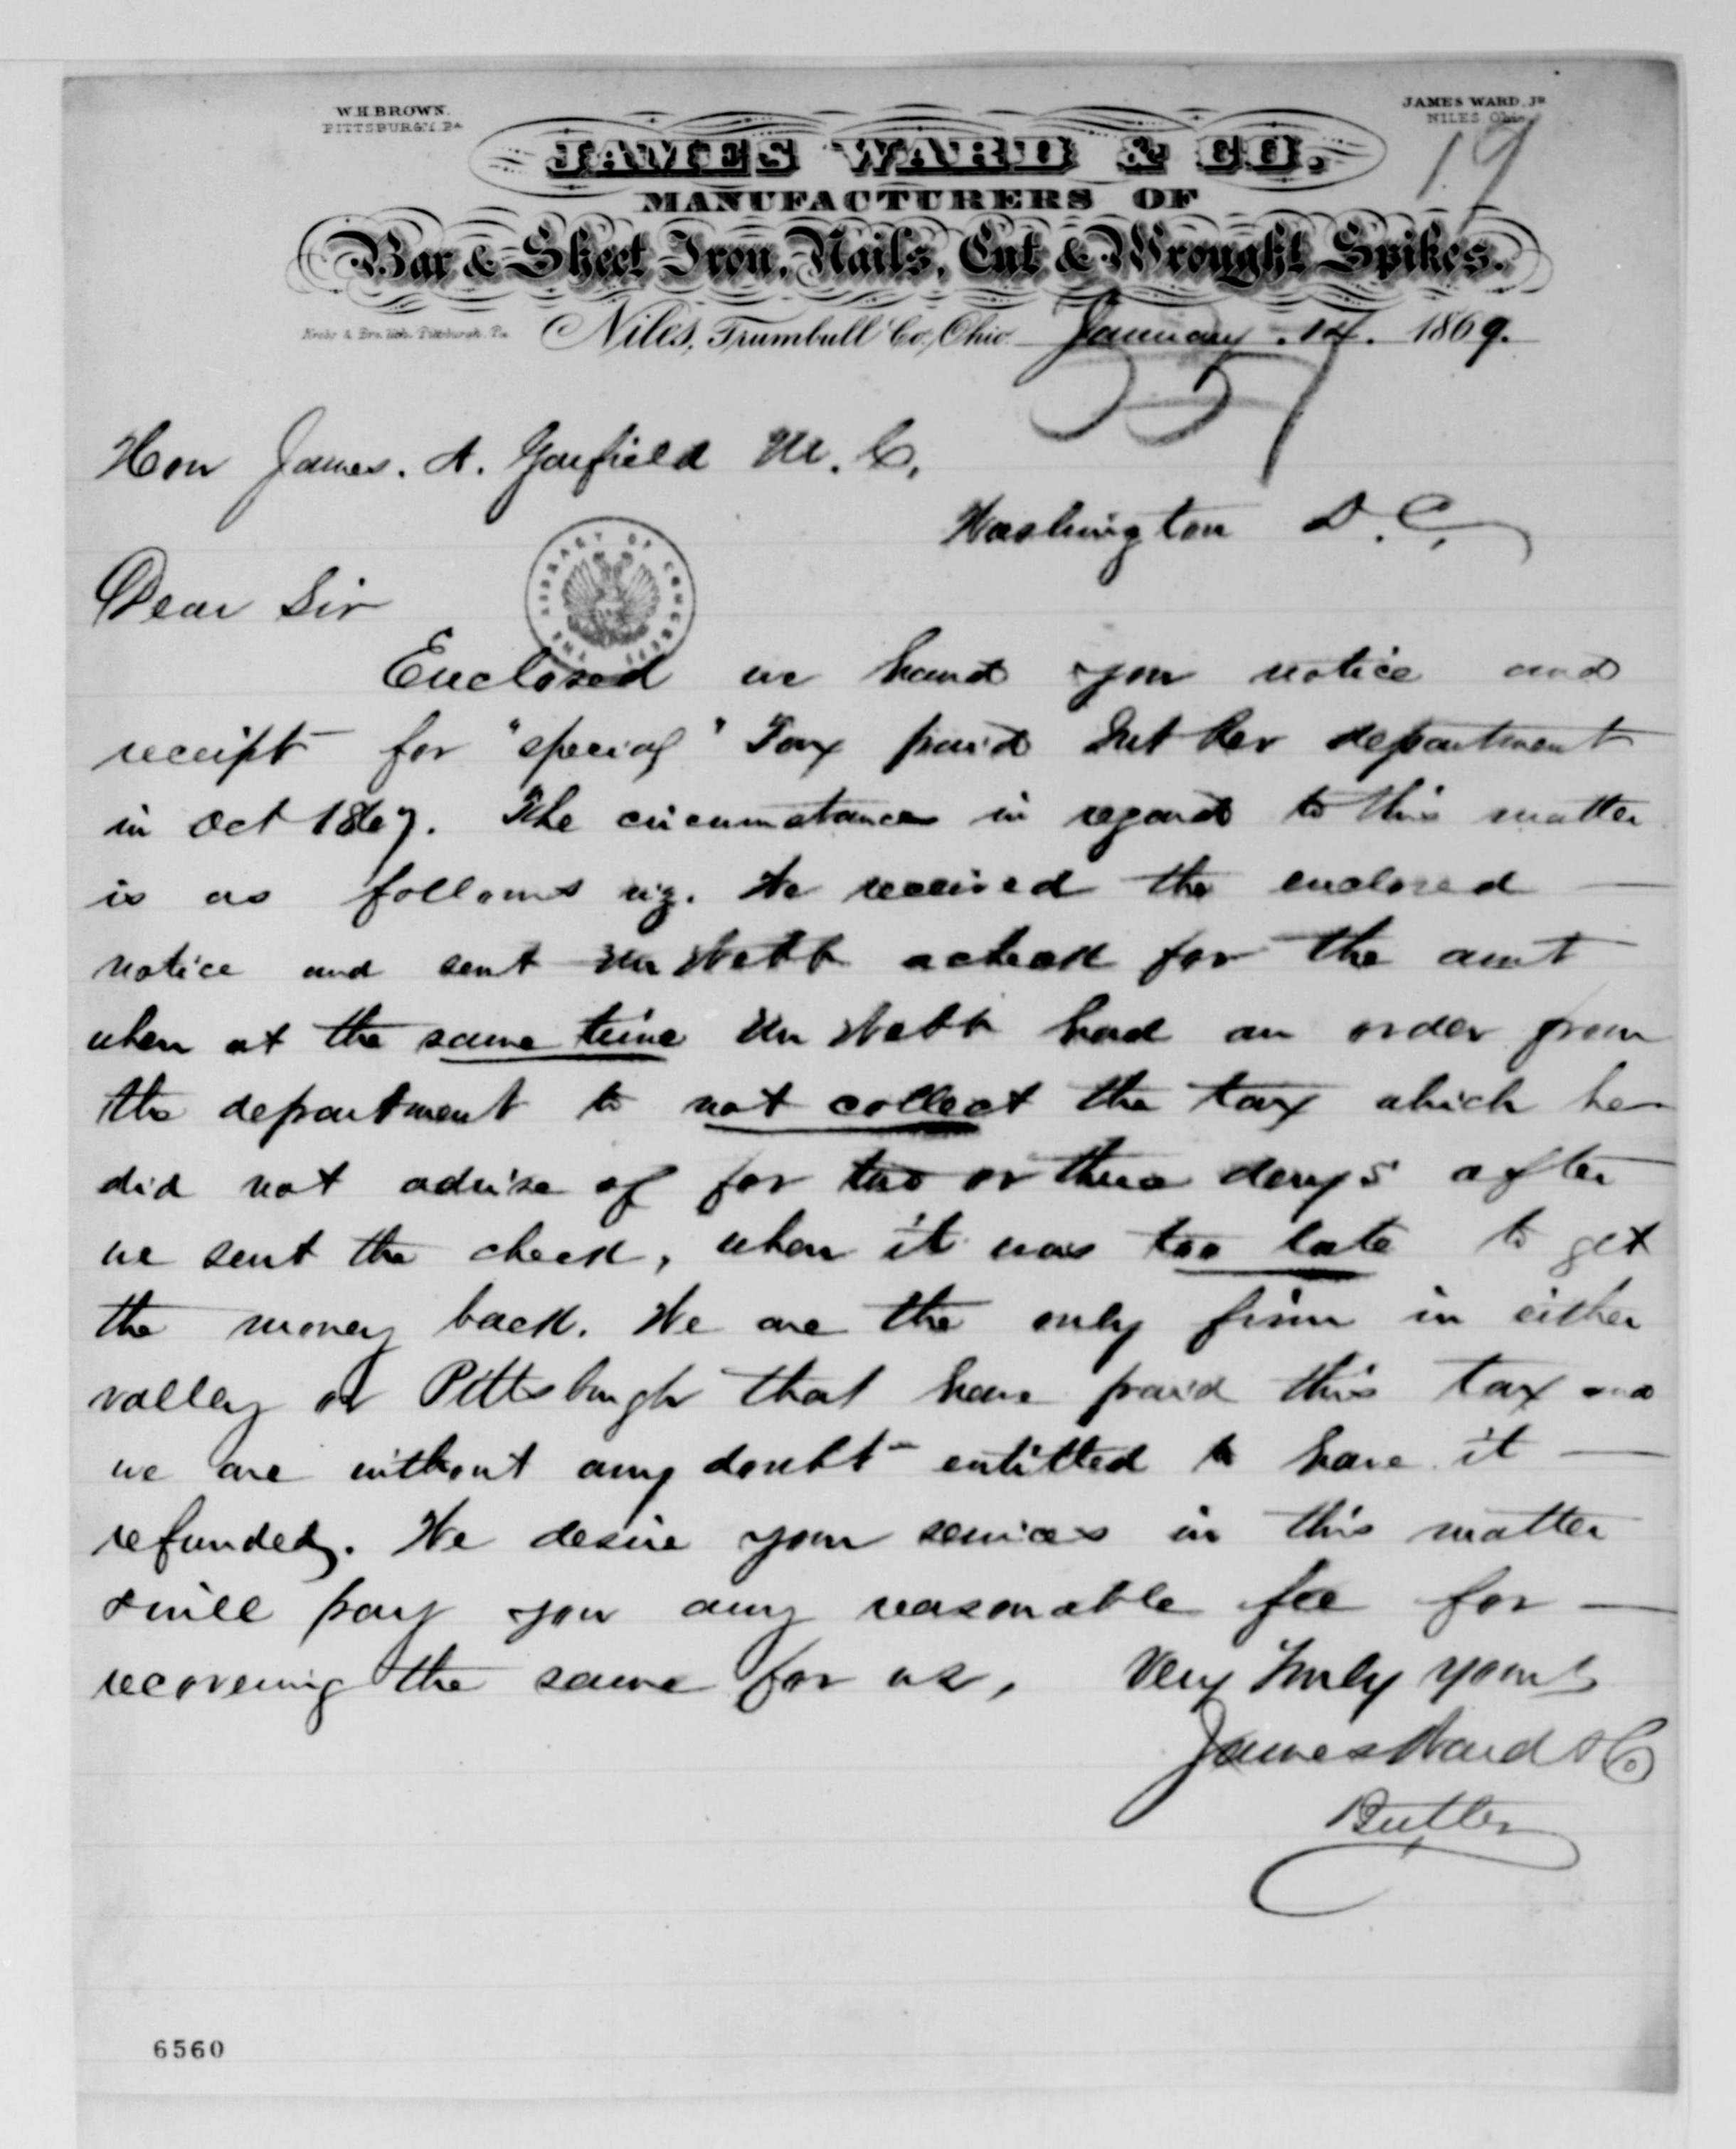 W.H.BROWN.
PITTSBURGH, PA
JAMES WARD, JR
NILES Ohio
19
JAMES WARD & CO.
MANUFACTURERS OF
Bar & Sheet Iron, Nails, Cut & Wrought Spikes.
Krebs & Bro. Lith. Pittsburgh. Pa.
Niles, Trumbull Co, Ohio January . 14. 1869.
357
Hon James. A. Garfield M. C.
Washington D. C.
THE LIBRARY OF CONGRESS
Dear Sir
Enclosed we hand you notice and
receipt for "special" Tax paid Int Rev department
in Oct 1867. The circumstances in regard to this matter
is as follows viz. We received the enclosed
notice and sent Mr Webb a check for the amt
when at the same time Mr Webb had an order from
the department to not collect the tax which he
did not advise of for two or three days after
we sent the check, when it was too late to get
the money back. We are the only firm in either
valley or Pittsburgh that have paid this tax and
we are without any doubt entitted to have it
refunded. We desire your services in this matter
& will pay you any reasonable fee for
recovering the same for us, Very Truly yours
James Ward & Co
Butler
6560